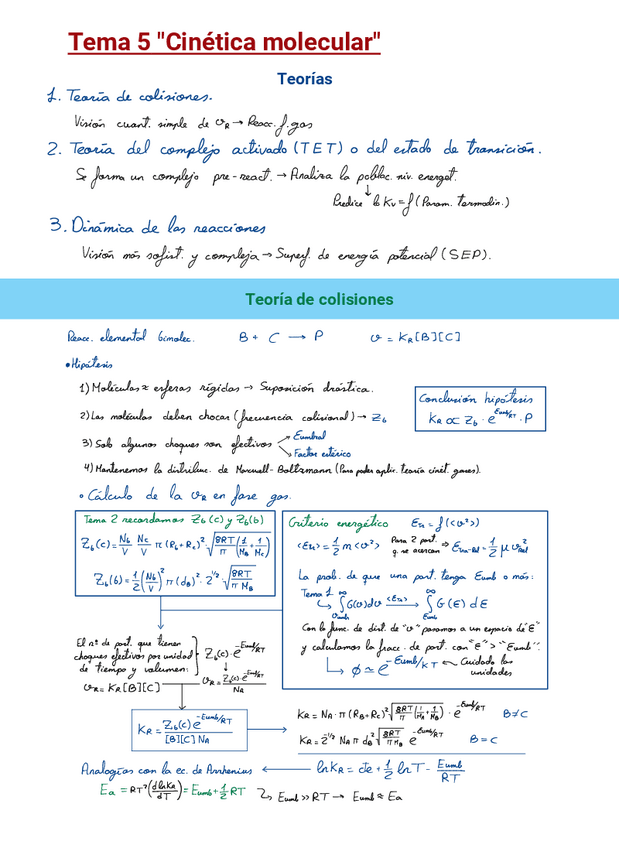 Tema 5 "Cinética molecular"
Teorías
1. Teoría de colisiones.
Visión cuant. simple de vR → Reacc. f. gas
2. Teoría del complejo activado (TET) o del estado de transición.
Se forma un complejo pre-react. → Analiza la poblac. niv. energet.
↓
Predice lo Kv = f (Param. termodin.)
3. Dinámica de las reacciones
Visión más sofist. y compleja → Superf. de energía potencial (SEP).
Teoría de colisiones
Reacc. elemental bimolec. B + C → P v = KR[B][C]
• Hipótesis
1) Moléculas ≈ esferas rígidas → Suposición drástica.
2) Las moléculas deben chocar (frecuencia colisional) → Zb
3) Solo algunos choques son efectivos
Eumbral
Factor estérico
4) Mantenemos la distribuc. de Maxwell-Boltzmann (Para poder aplic. teoría cinét. gases).
Conclusión hipótesis
KR ∝ Zb · e^-Eumb/RT · P
• Cálculo de la vR en fase gas.
Tema 2 recordamos Zb(c) y Zb(b)
Zb(c) = Nb/V Nc/V π (Rb+Rc)² √(8RT/π (1/MB + 1/MC))
Zb(b) = 1/2 (Nb/V)² π (dB)² · 2^1/2 · √(8RT/π MB)
Criterio energético Etr = f(<v²>)
<Etr> = 1/2 m <v²> Para 2 part. q. se acercan ⇒ Etra-Rel = 1/2 μ v²rel
La prob. de que una part. tenga Eumb o más:
Tema 1
↳ ∫ G(v)dv <Etr>→ ∫ G(E) dE
Con la func. de dist. de "v" pasamos a un espacio de "E"
y calculamos la fracc. de part. con "E" > "Eumb".
↳ φ ≃ e^-Eumb/kT ← Cuidado las unidades
El nº de part. que tienen
choques efectivos por unidad
de tiempo y volumen:
Zb(c) · e^-Eumb/RT
↓
vR = KR[B][C] vR = Zb(c) e^-Eumb/RT / NA
KR = Zb(c) e^-Eumb/RT / [B][C] NA
KR = NA · π (RB+Rc)² √(8RT/π (1/MB + 1/MB)) · e^-Eumb/RT B≠C
KR = 2^-1/2 NA π dB² √(8RT/π MB) e^-Eumb/RT B=C
Analogías con la ec. de Arrhenius ← ln KR = cte + 1/2 ln T - Eumb/RT
Ea = RT² (dlnKR/dT) = Eumb + 1/2 RT ↳ Eumb >> RT → Eumb ≈ Ea